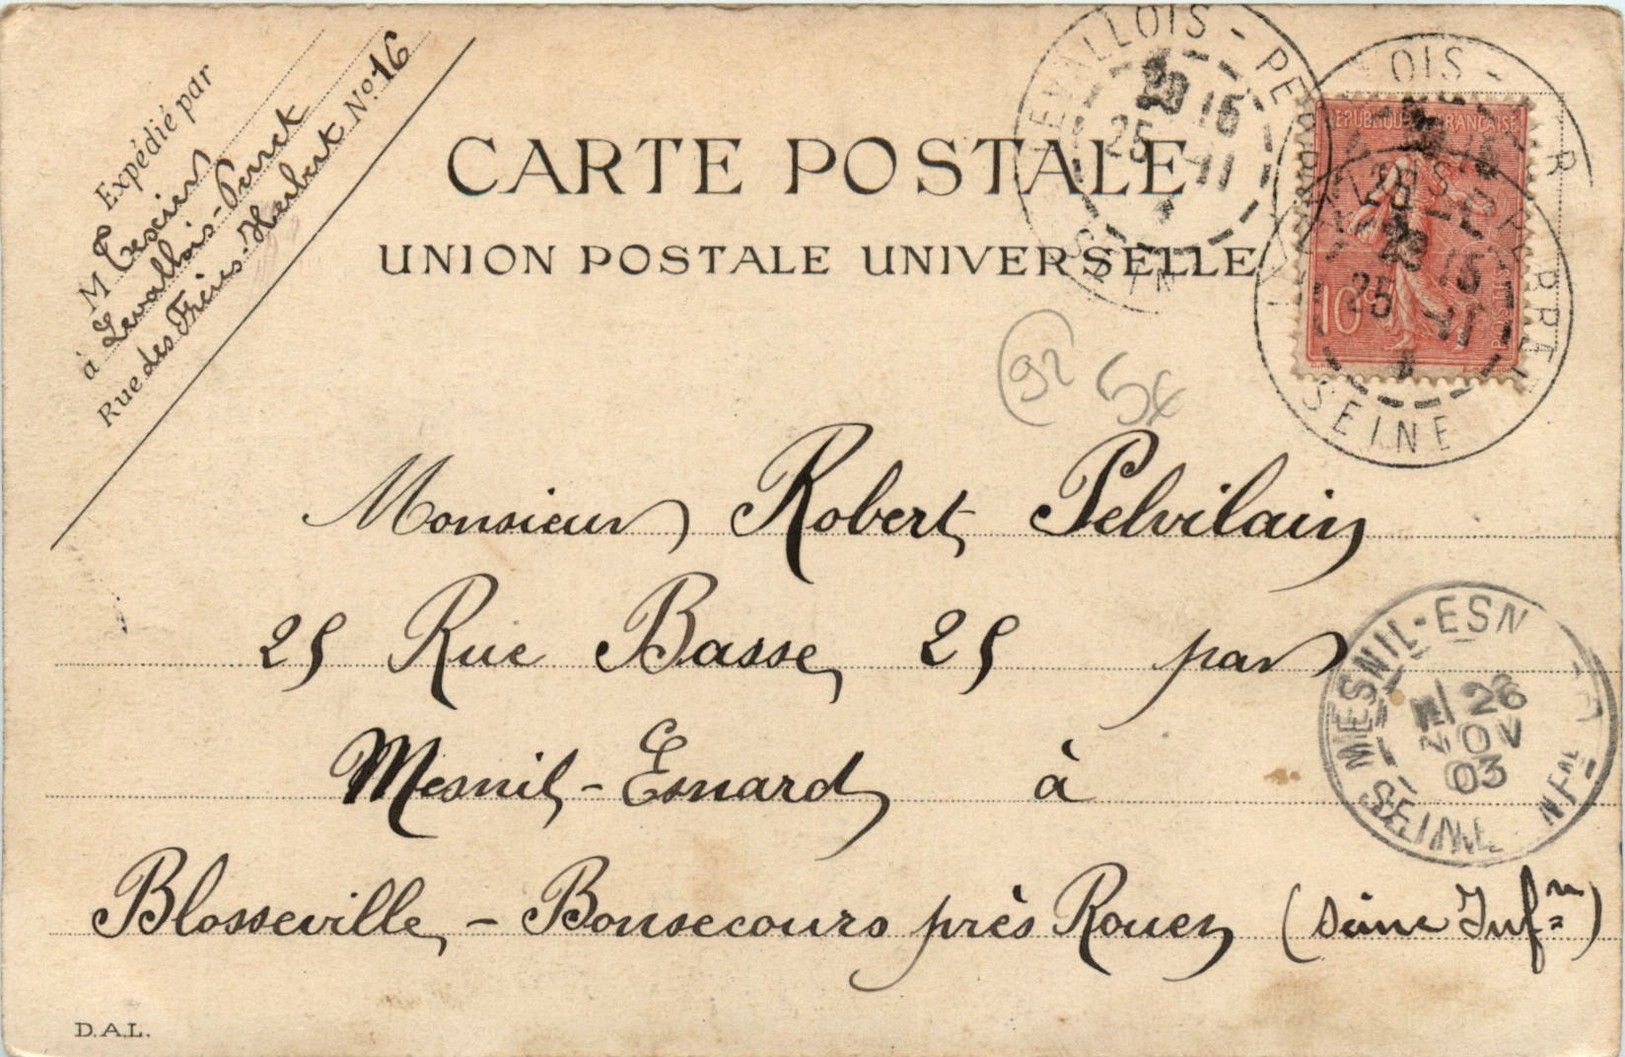 Expédié par
M Texier
à Levallois-Perret
Rue des Frères Herbert No. 16
CARTE POSTALE
UNION POSTALE UNIVERSELLE
LEVALLOIS-PERRET
20 15
25 -11
SEINE
REPUBLIQUE FRANÇAISE
10c
POSTES
LEVALLOIS-PERRET
20 15
25 -11
SEINE
92
5x
Monsieur Robert Pelvilain
25 Rue Basse, 25 par
Mesnil-Esnard à
Blosseville-Bonsecours près Rouen (Seine Infre)
MESNIL-ESN
26
NOV
03
SEINE INFRE
D.A.L.